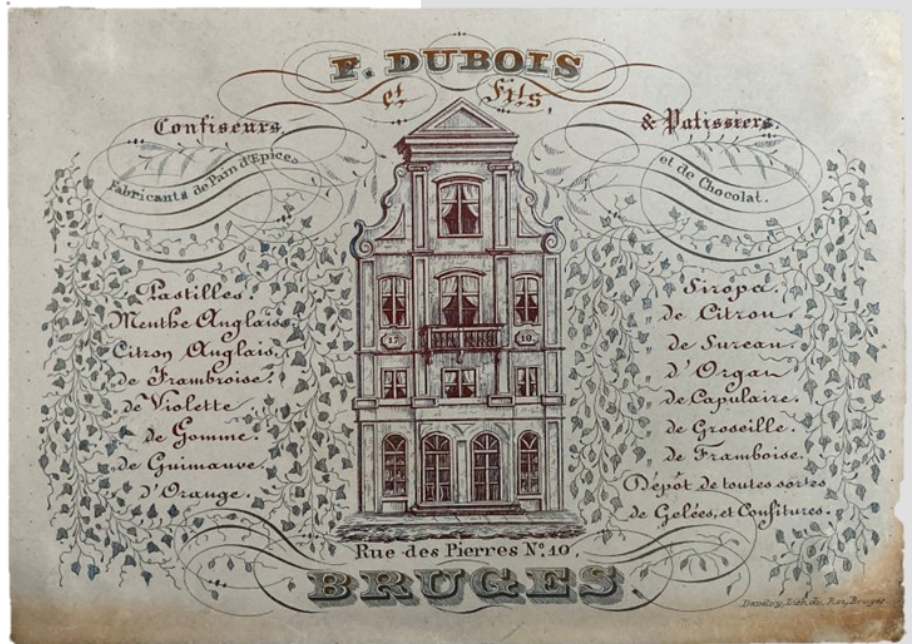 F. DUBOIS
et Fils,
Confiseurs, & Patissiers,
Fabricants de Pain d'Epices et de Chocolat.
Pastilles.
Menthe Anglais.
Citron Anglais.
de Frambroise.
de Violette
de Gomme.
de Guimauve.
d'Orange.
17 10.
Sirops.
de Citron.
" de Sureau.
" d'Organ
" de Capulaire.
" de Groseille.
" de Framboise.
Dépôt de toutes sortes
de Gelées, et Confitures.
Rue des Pierres N° 10,
BRUGES
Daveluy, Lith. du Roi, Bruges.